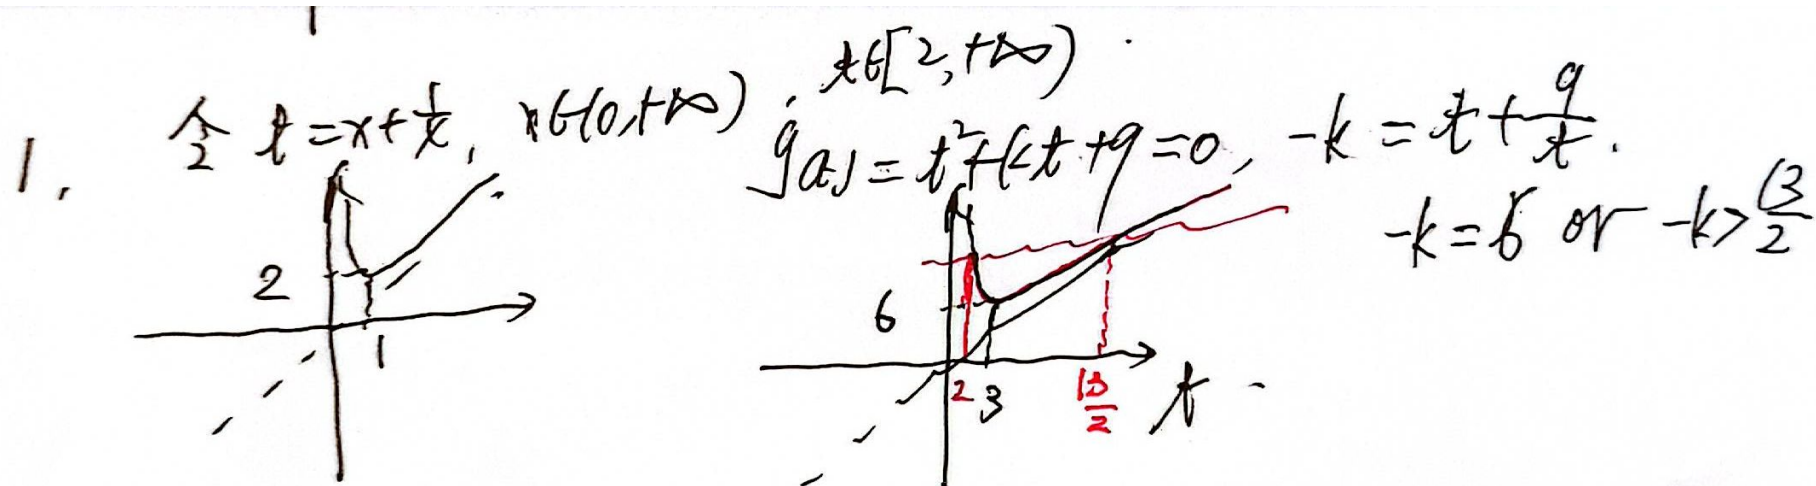 1. 令 t = x + 1/x, x∈(0,+∞), t∈[2,+∞).
g(t) = t² + kt + 9 = 0, -k = t + 9/t.
-k = 6 or -k > 13/2
2
1
6
2 3 13/2 t